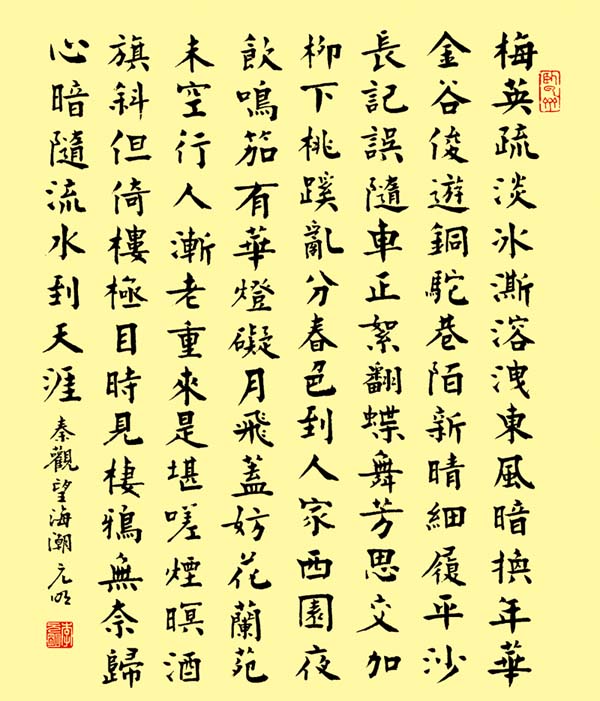 梅英疏淡冰澌溶洩東風暗換年華
金谷俊遊銅駝巷陌新晴細履平沙
長記誤隨車正絮翻蝶舞芳思交加
柳下桃蹊亂分春色到人家西園夜
飲鳴笳有華燈礙月飛蓋妨花蘭苑
未空行人漸老重來是堪嗟煙暝酒
旗斜但倚樓極目時見棲鴉無奈歸
心暗隨流水到天涯
秦觀望海潮